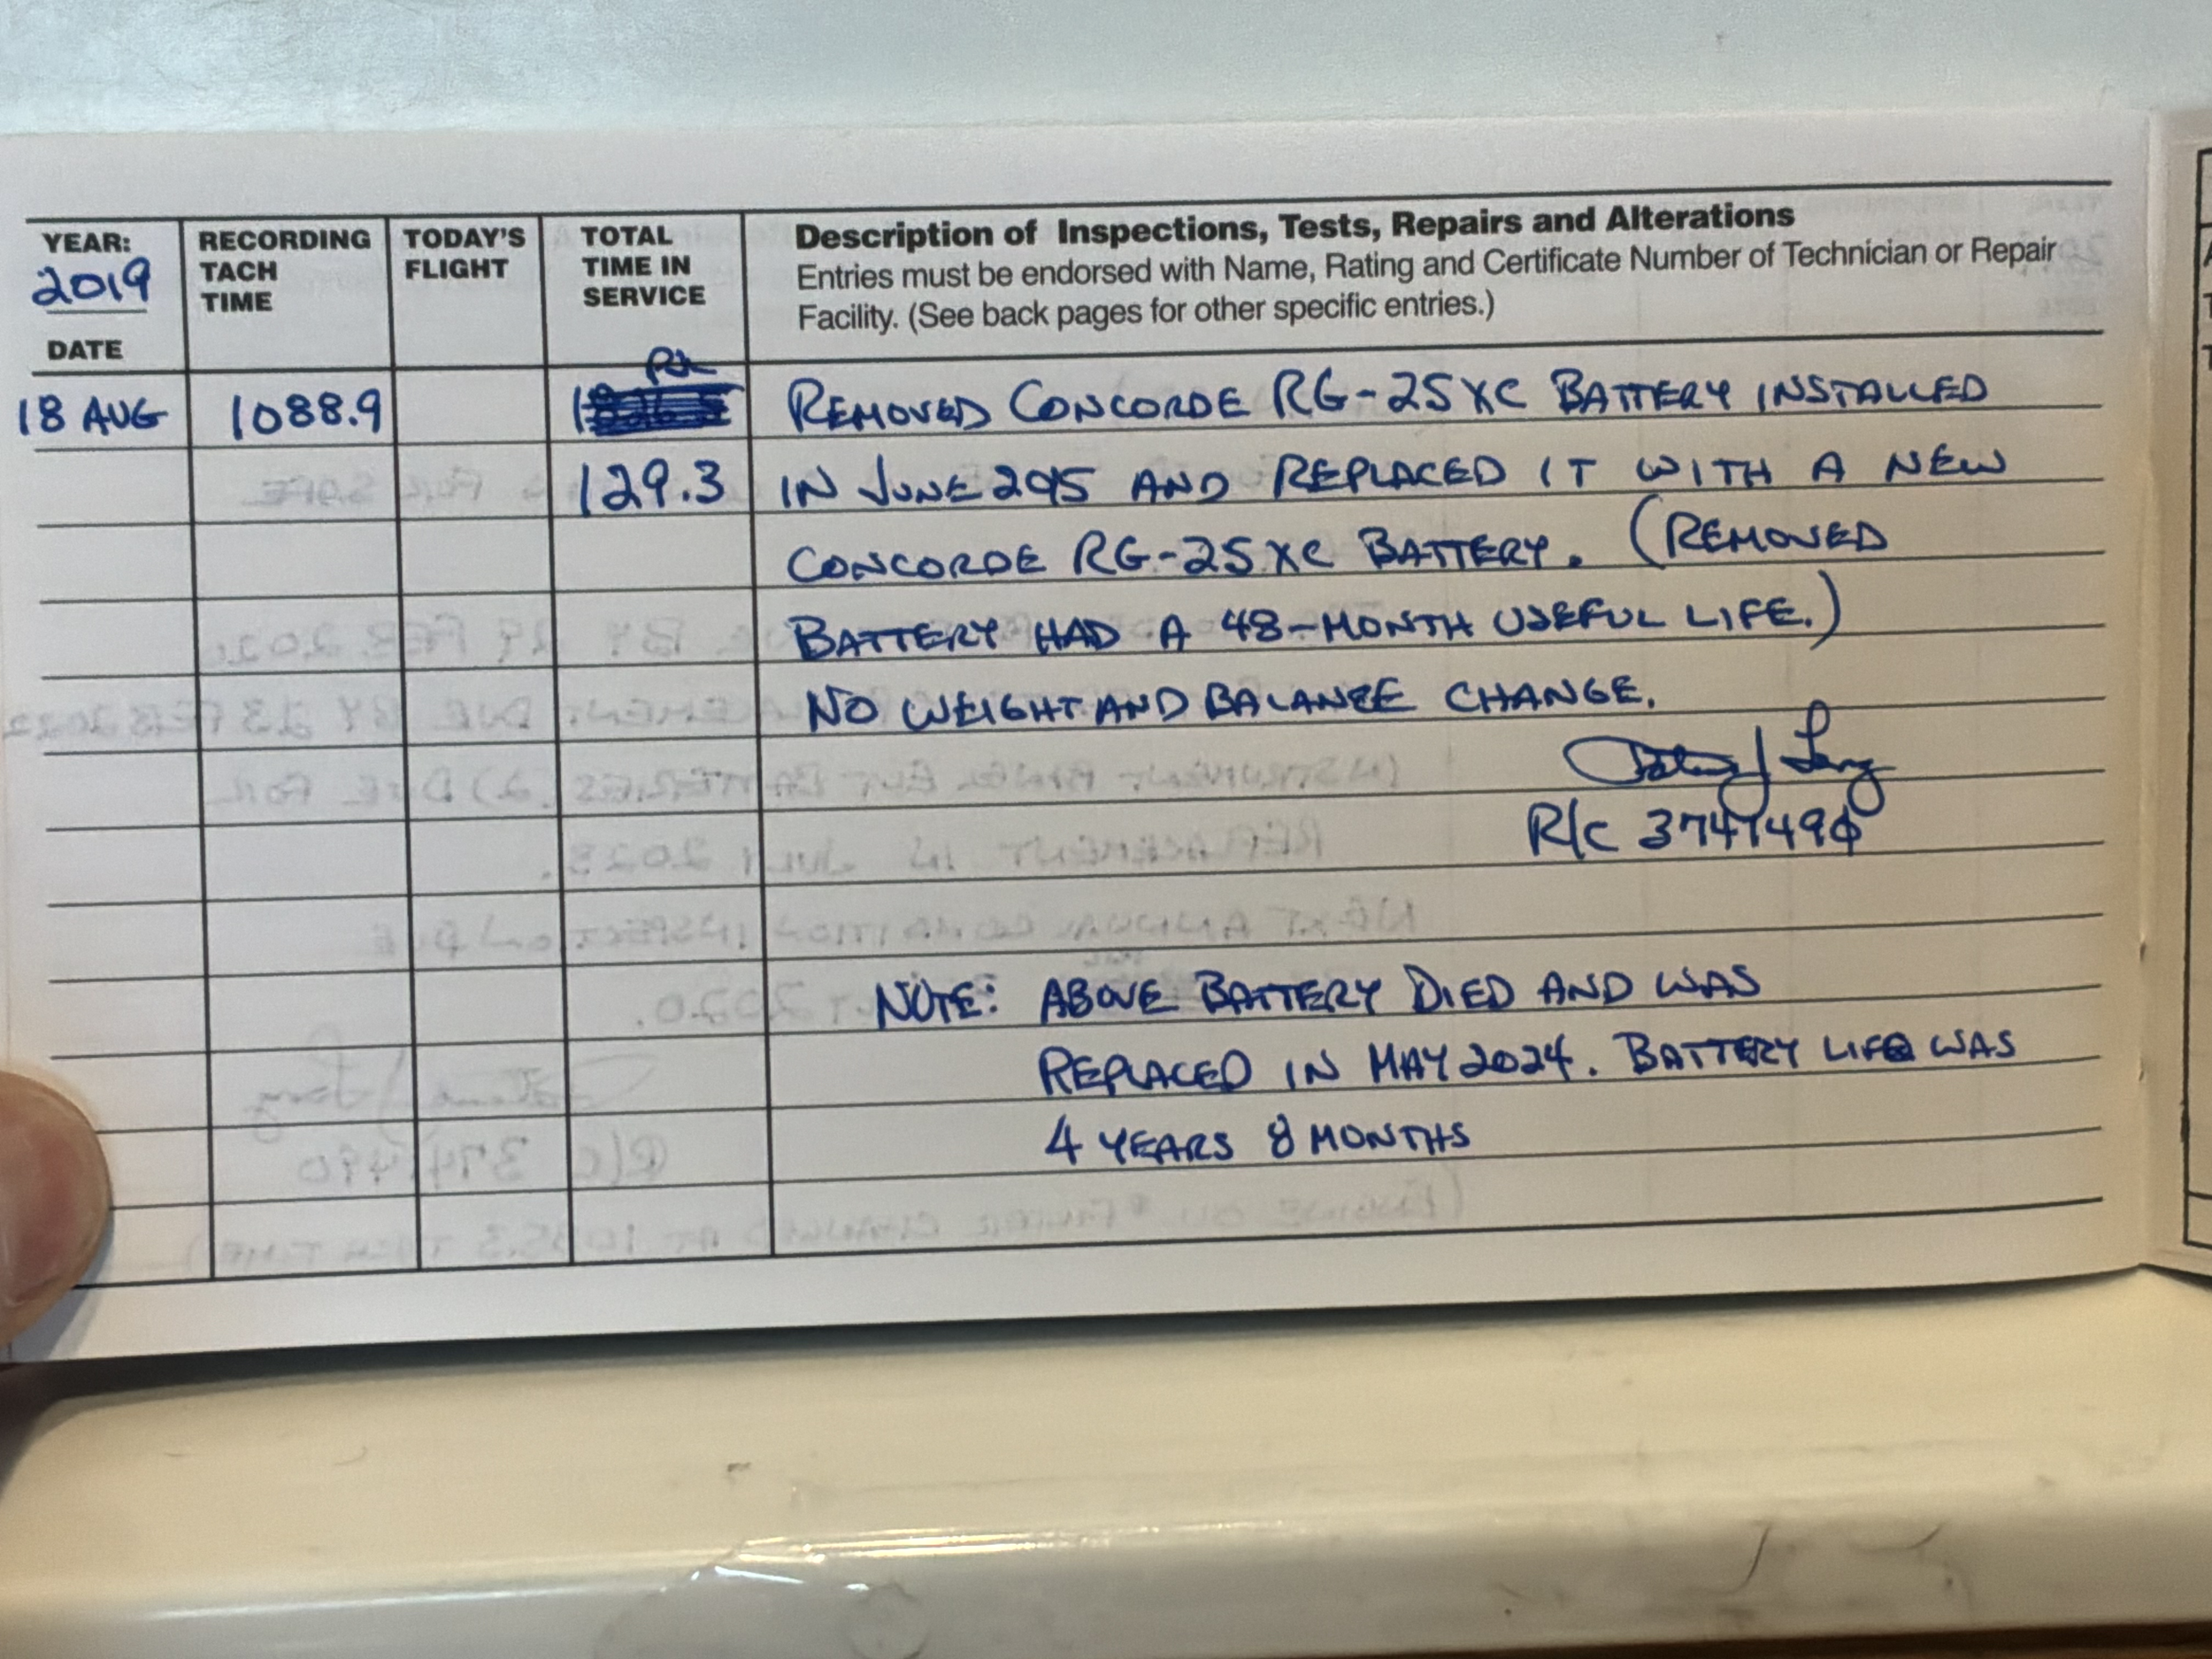 YEAR:
2019
DATE
RECORDING
TACH
TIME
TODAY'S
FLIGHT
TOTAL
TIME IN
SERVICE
Description of Inspections, Tests, Repairs and Alterations
Entries must be endorsed with Name, Rating and Certificate Number of Technician or Repair
Facility. (See back pages for other specific entries.)
18 AUG 1088.9 REMOVED CONCORDE RG-25XC BATTERY INSTALLED
129.3 IN JUNE 2015 AND REPLACED IT WITH A NEW
CONCORDE RG-25XC BATTERY. (REMOVED
BATTERY HAD A 48-MONTH USEFUL LIFE.)
NO WEIGHT AND BALANCE CHANGE.
R/C 3747490
NOTE: ABOVE BATTERY DIED AND WAS
REPLACED IN MAY 2024. BATTERY LIFE WAS
4 YEARS 8 MONTHS